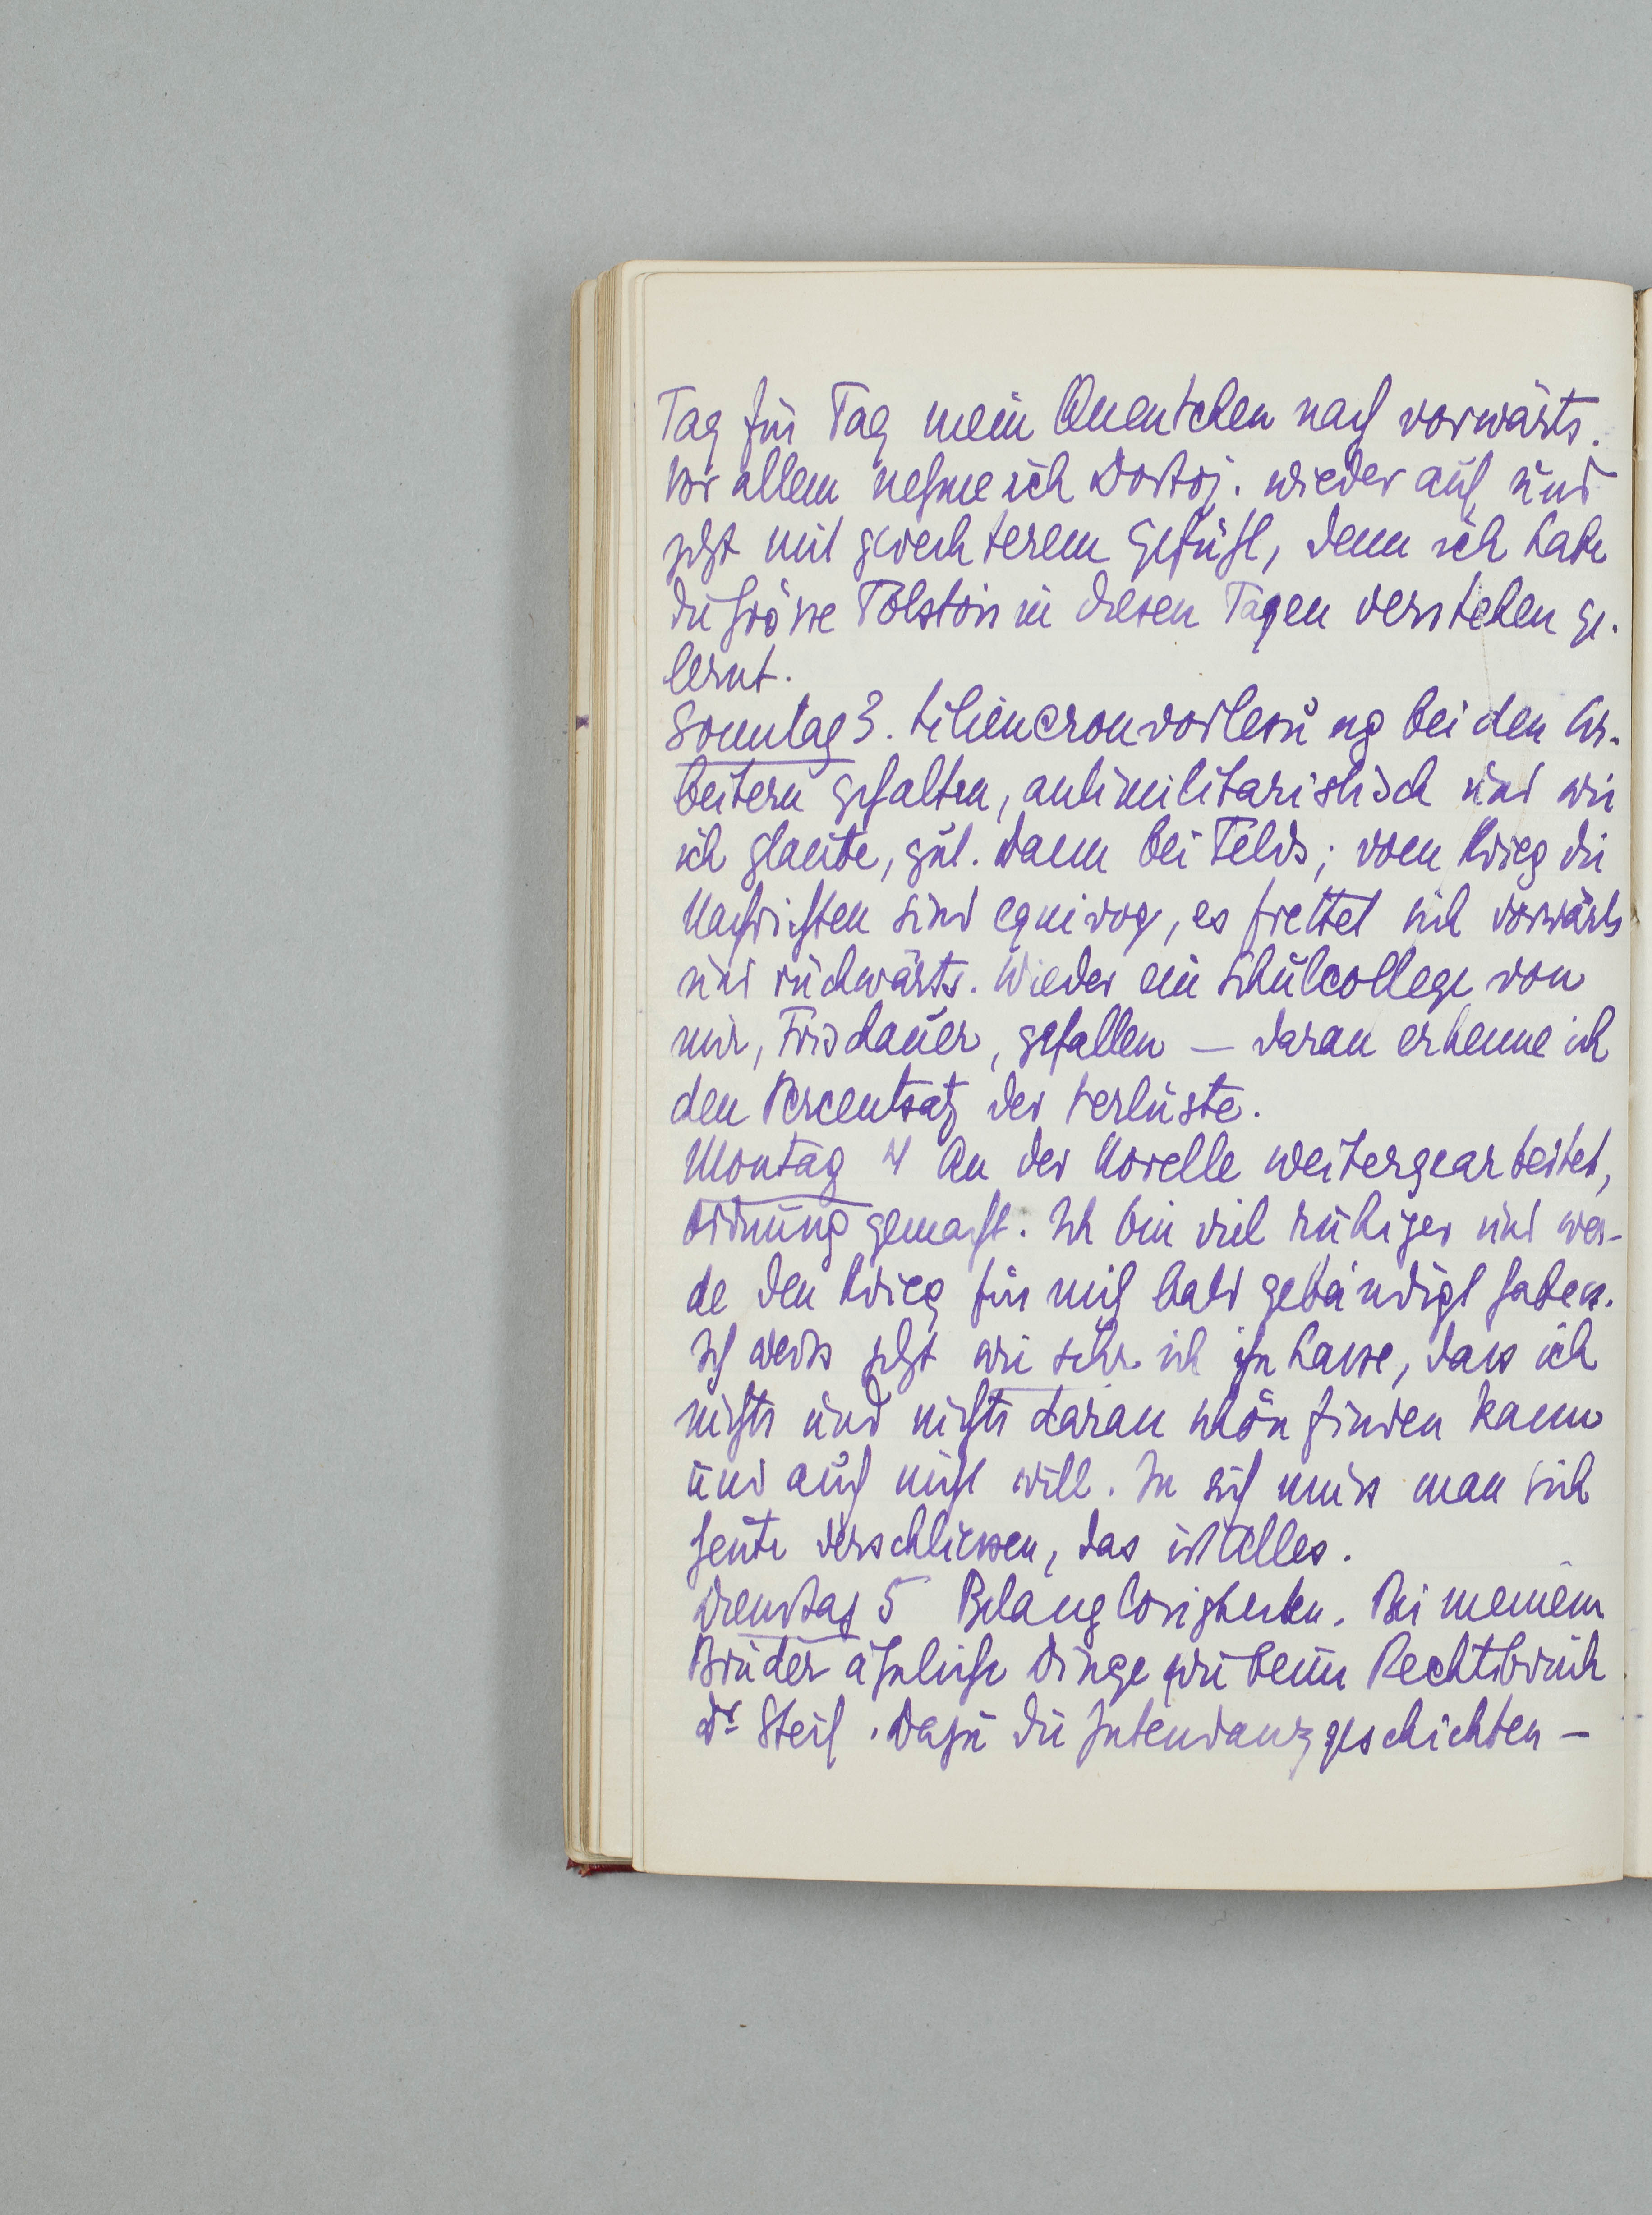 Tag für Tag mein Quentchen nach vorwärts.
Vor allem nehme ich Dostoj. wieder auf und
jetzt mit gerechterem Gefühl, denn ich habe
die Grösse Tolstois in diesen Tagen verstehen ge-
lernt.
Sonntag 3. Liliencronvorlesung bei den Ar-
beitern gehalten, antimilitaristisch und wie
ich glaube, gut. Dann bei Felds; vom Krieg die
Nachrichten sind equivog, es frettet sich vorwärts
und rückwärts. Wieder ein Schulcollege von
mir, Frischauer, gefallen — daran erkenne ich
den Percentsatz der Verluste.
Montag 4 An der Novelle weitergearbeitet,
Ordnung gemacht. Ich bin viel ruhiger und wer-
de den Krieg für mich bald gebändigt haben.
Ich weiss jetzt wie sehr ich ihn hasse, dass ich
nichts und nichts daran schön finden kann
und auch nicht will. In sich muss man sich
heute verschliessen, das ist Alles.
Dienstag 5 Belanglosigkeiten. Bei meinem
Bruder ähnliche Dinge wie beim Rechtsbruch
Dr Steif. Dazu die Intendanzgeschichten —